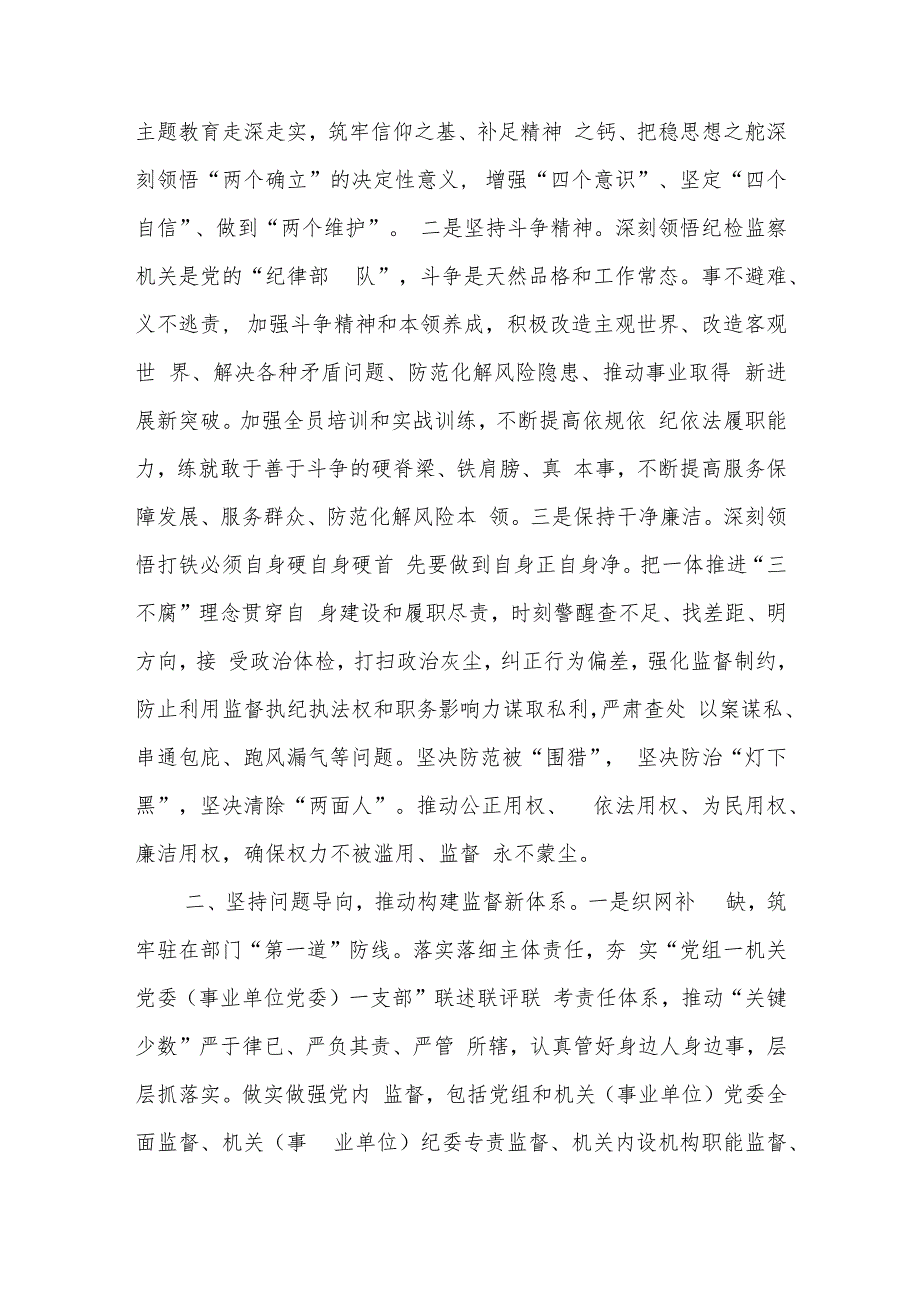 主题教育走深走实，筑牢信仰之基、补足精神 之钙、把稳思想之舵深
刻领悟“两个确立”的决定性意义， 增强“四个意识”、坚定“四个
自信”、做到“两个维护”。 二是坚持斗争精神。深刻领悟纪检监察
机关是党的“纪律部 队”，斗争是天然品格和工作常态。事不避难、
义不逃责， 加强斗争精神和本领养成，积极改造主观世界、改造客观
世 界、解决各种矛盾问题、防范化解风险隐患、推动事业取得 新进
展新突破。加强全员培训和实战训练，不断提高依规依 纪依法履职能
力，练就敢于善于斗争的硬脊梁、铁肩膀、真 本事，不断提高服务保
障发展、服务群众、防范化解风险本 领。三是保持干净廉洁。深刻领
悟打铁必须自身硬自身硬首 先要做到自身正自身净。把一体推进“三
不腐”理念贯穿自 身建设和履职尽责，时刻警醒查不足、找差距、明
方向，接 受政治体检，打扫政治灰尘，纠正行为偏差，强化监督制约，
防止利用监督执纪执法权和职务影响力谋取私利，严肃查处 以案谋私、
串通包庇、跑风漏气等问题。坚决防范被“围猎”， 坚决防治“灯下
黑”，坚决清除“两面人”。推动公正用权、 依法用权、为民用权、
廉洁用权，确保权力不被滥用、监督 永不蒙尘。
二、坚持问题导向，推动构建监督新体系。一是织网补 缺，筑
牢驻在部门“第一道”防线。落实落细主体责任，夯 实“党组一机关
党委（事业单位党委）一支部”联述联评联 考责任体系，推动“关键
少数”严于律已、严负其责、严管 所辖，认真管好身边人身边事，层
层抓落实。做实做强党内 监督，包括党组和机关（事业单位）党委全
面监督、机关（事 业单位）纪委专责监督、机关内设机构职能监督、